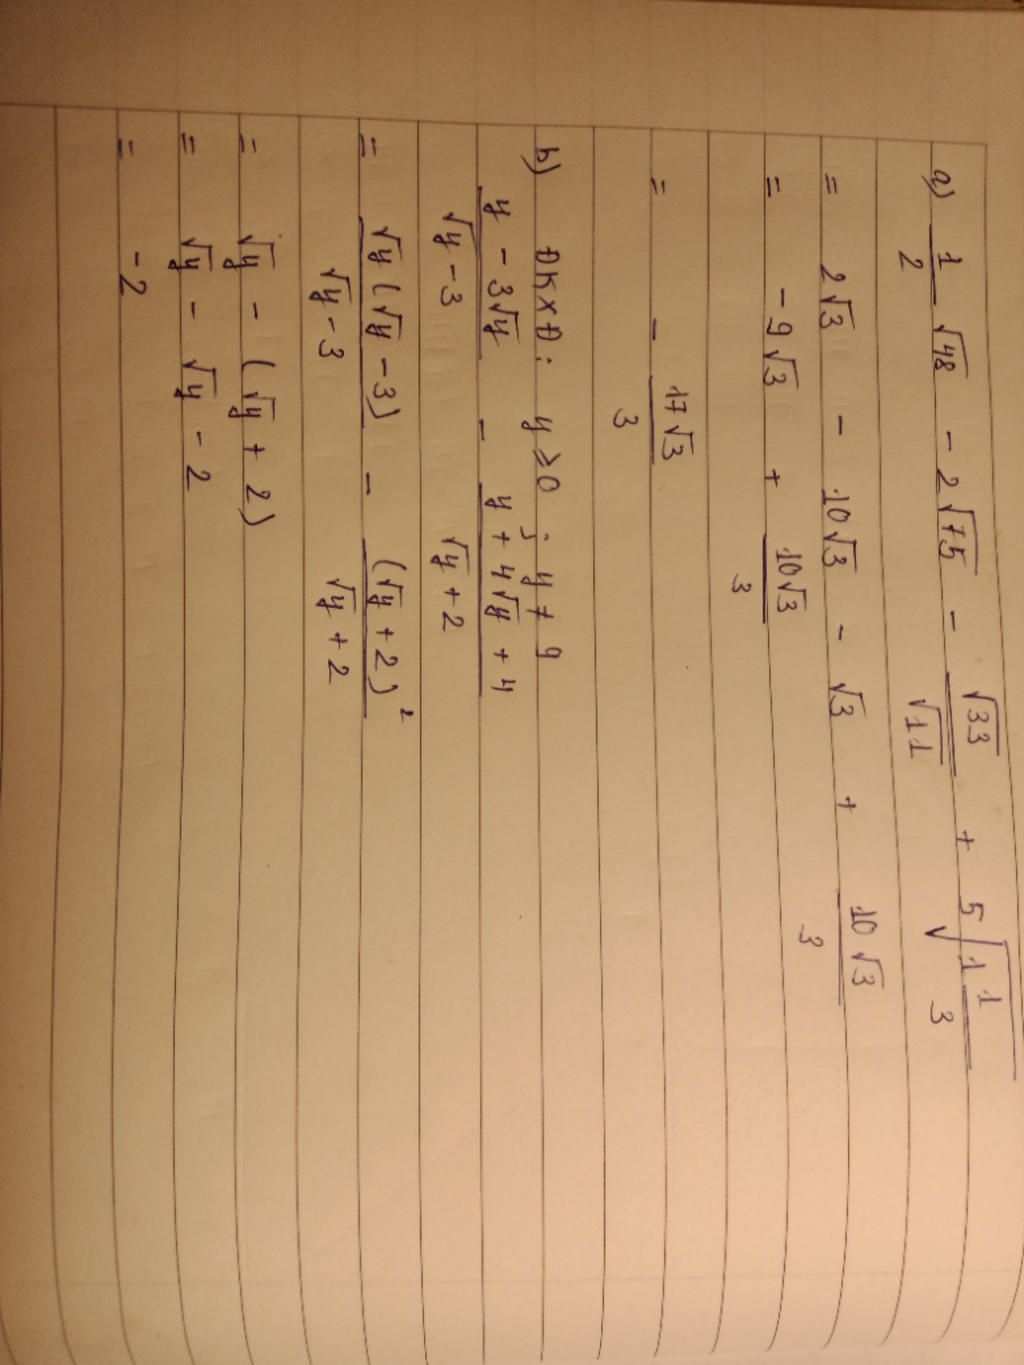 a) 1/2 √48 - 2√75 - √33/√11 + 5√(1 1/3)
= 2√3 - 10√3 - √3 + 10√3/3
= -9√3 + 10√3/3
= - 17√3/3
b) ĐKXĐ: y ≥ 0 ; y ≠ 9
(y - 3√y)/(√y - 3) - (y + 4√y + 4)/(√y + 2)
= √y(√y - 3)/(√y - 3) - (√y + 2)²/(√y + 2)
= √y - (√y + 2)
= √y - √y - 2
= -2